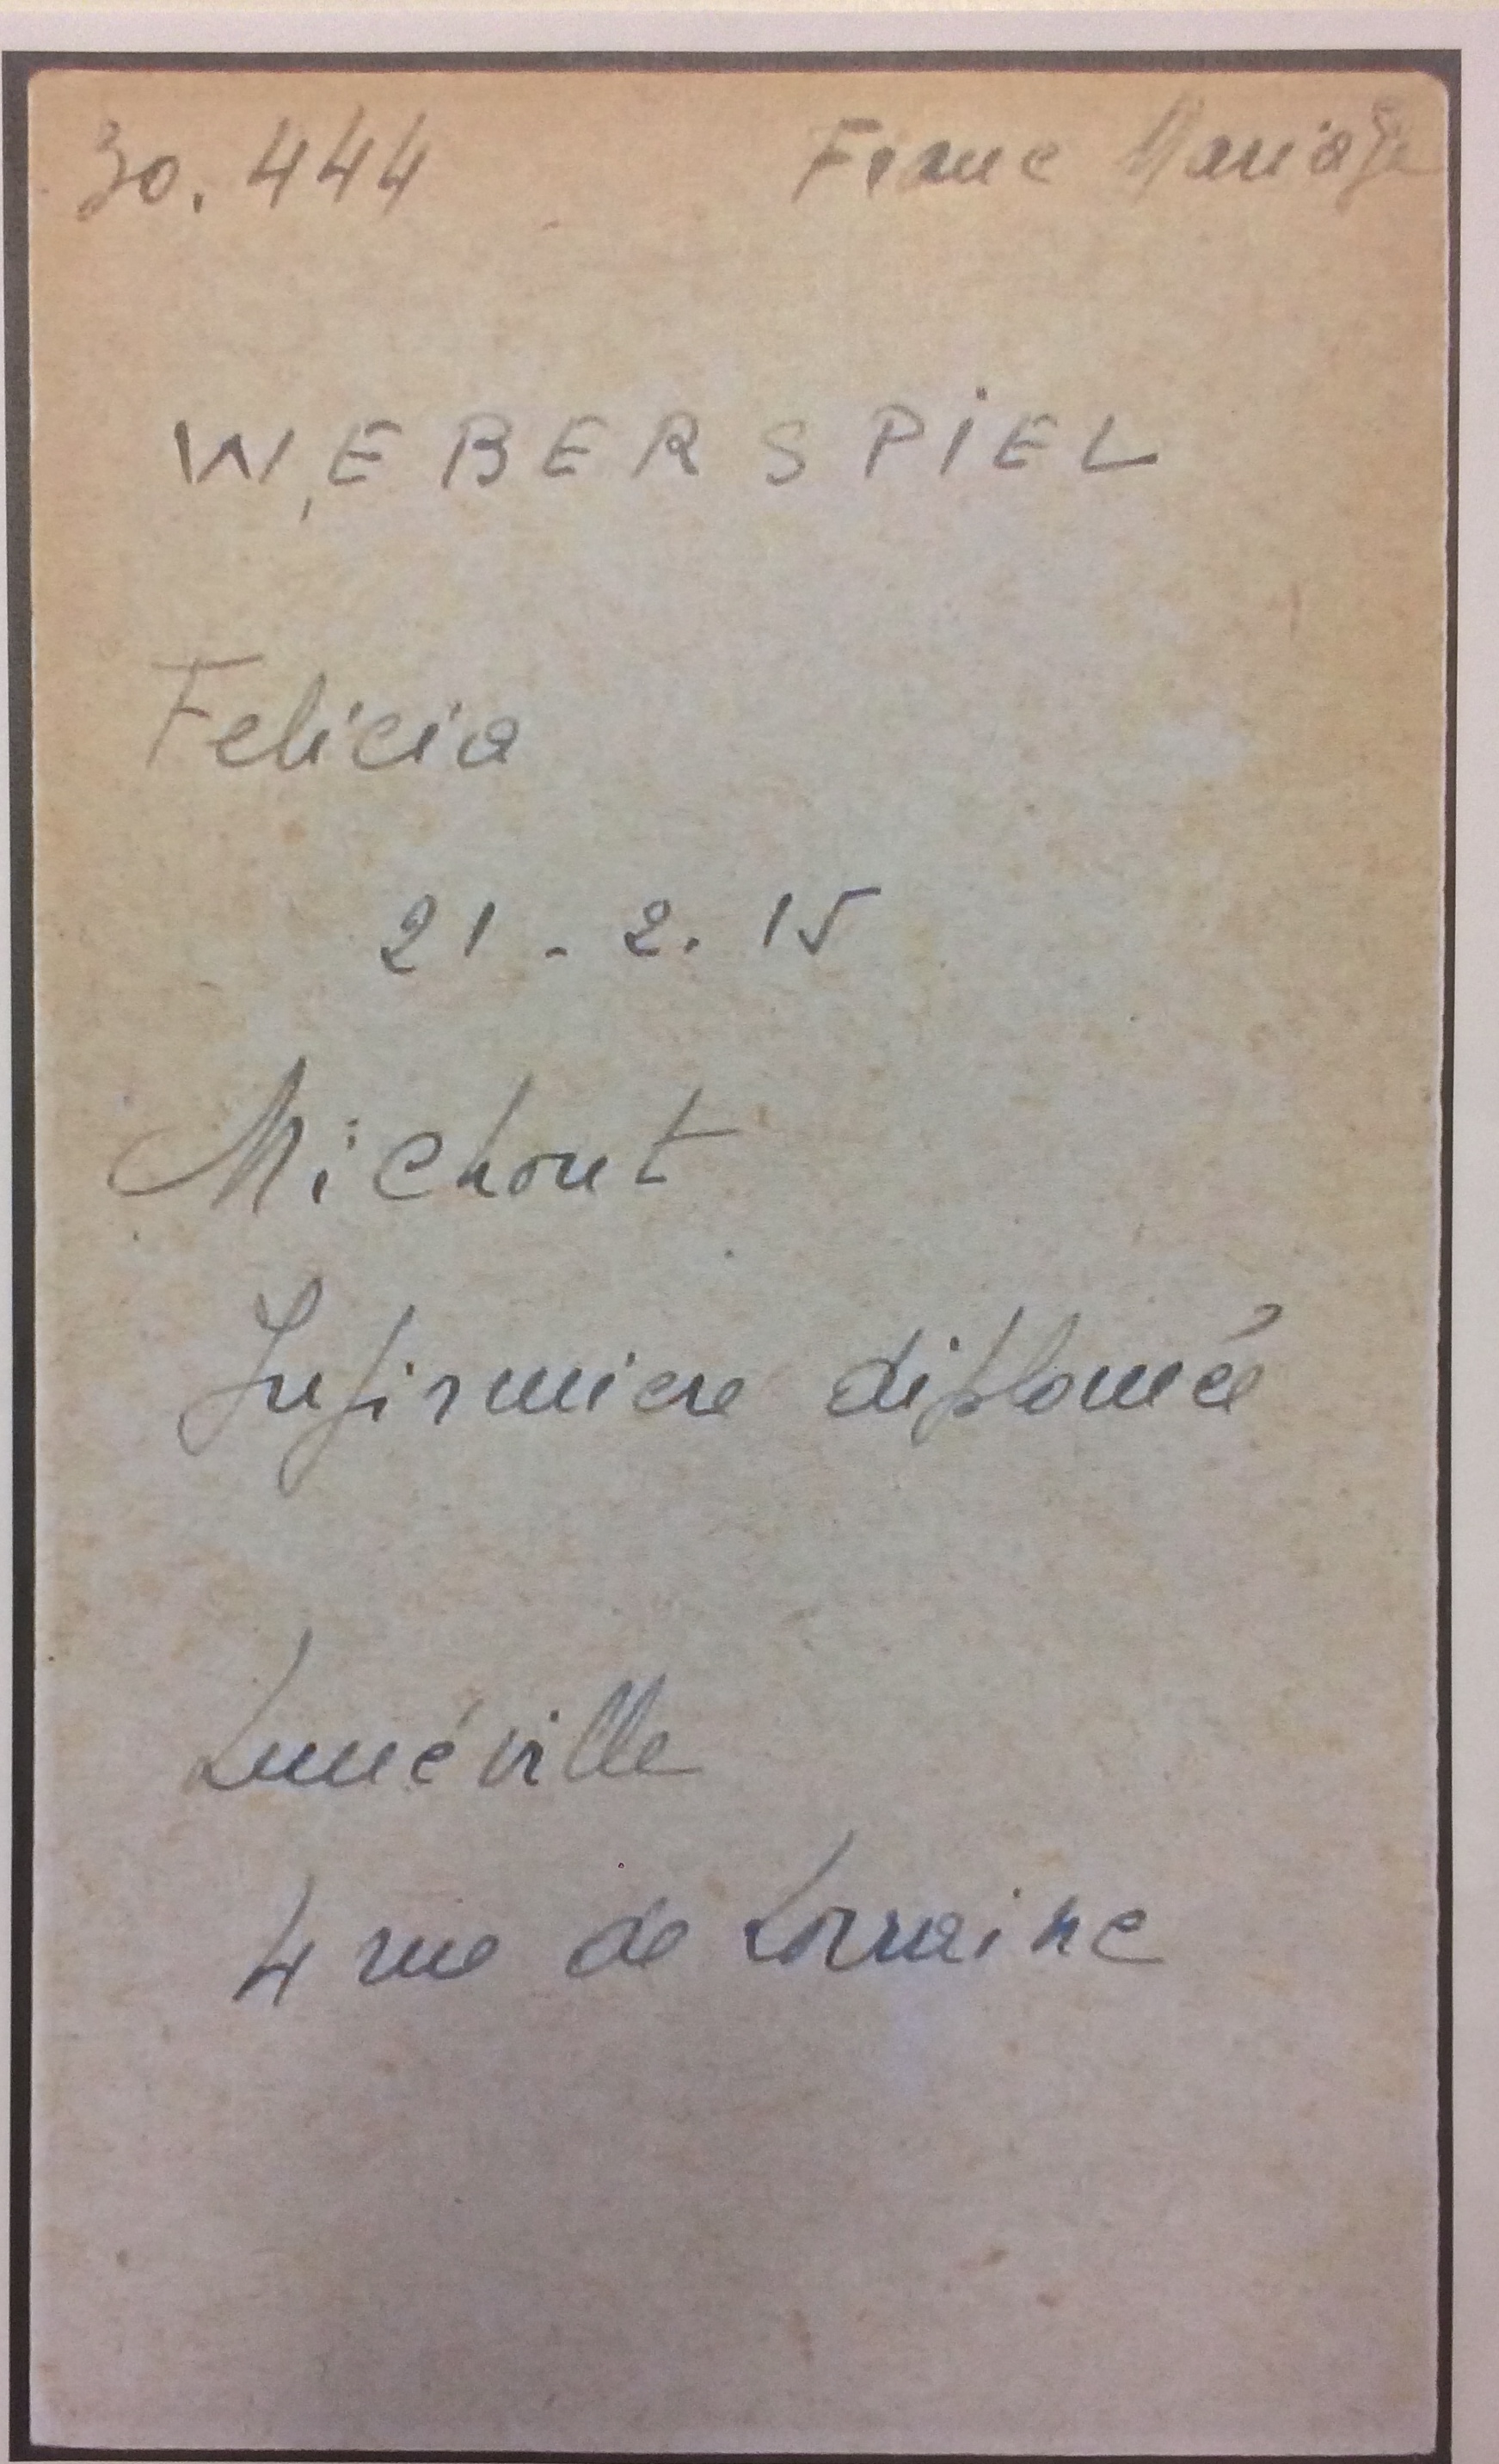 30.444 Franc Mariage
WEBERSPIEL
Felicia
21-2.15
Michout
Infirmiere diplomée
Lunéville
4 rue de Lorraine